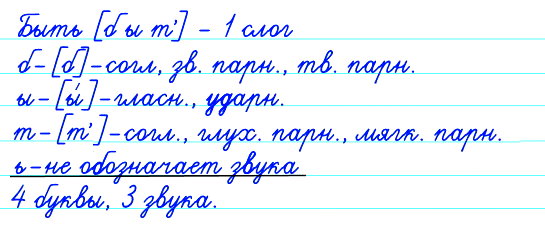 Быть [б ы т'] - 1 слог
б-[б]-согл, зв. парн., тв. парн.
ы-[ы́]-гласн., ударн.
т-[т']-согл., глух. парн., мягк. парн.
ь-не обозначает звука
4 буквы, 3 звука.